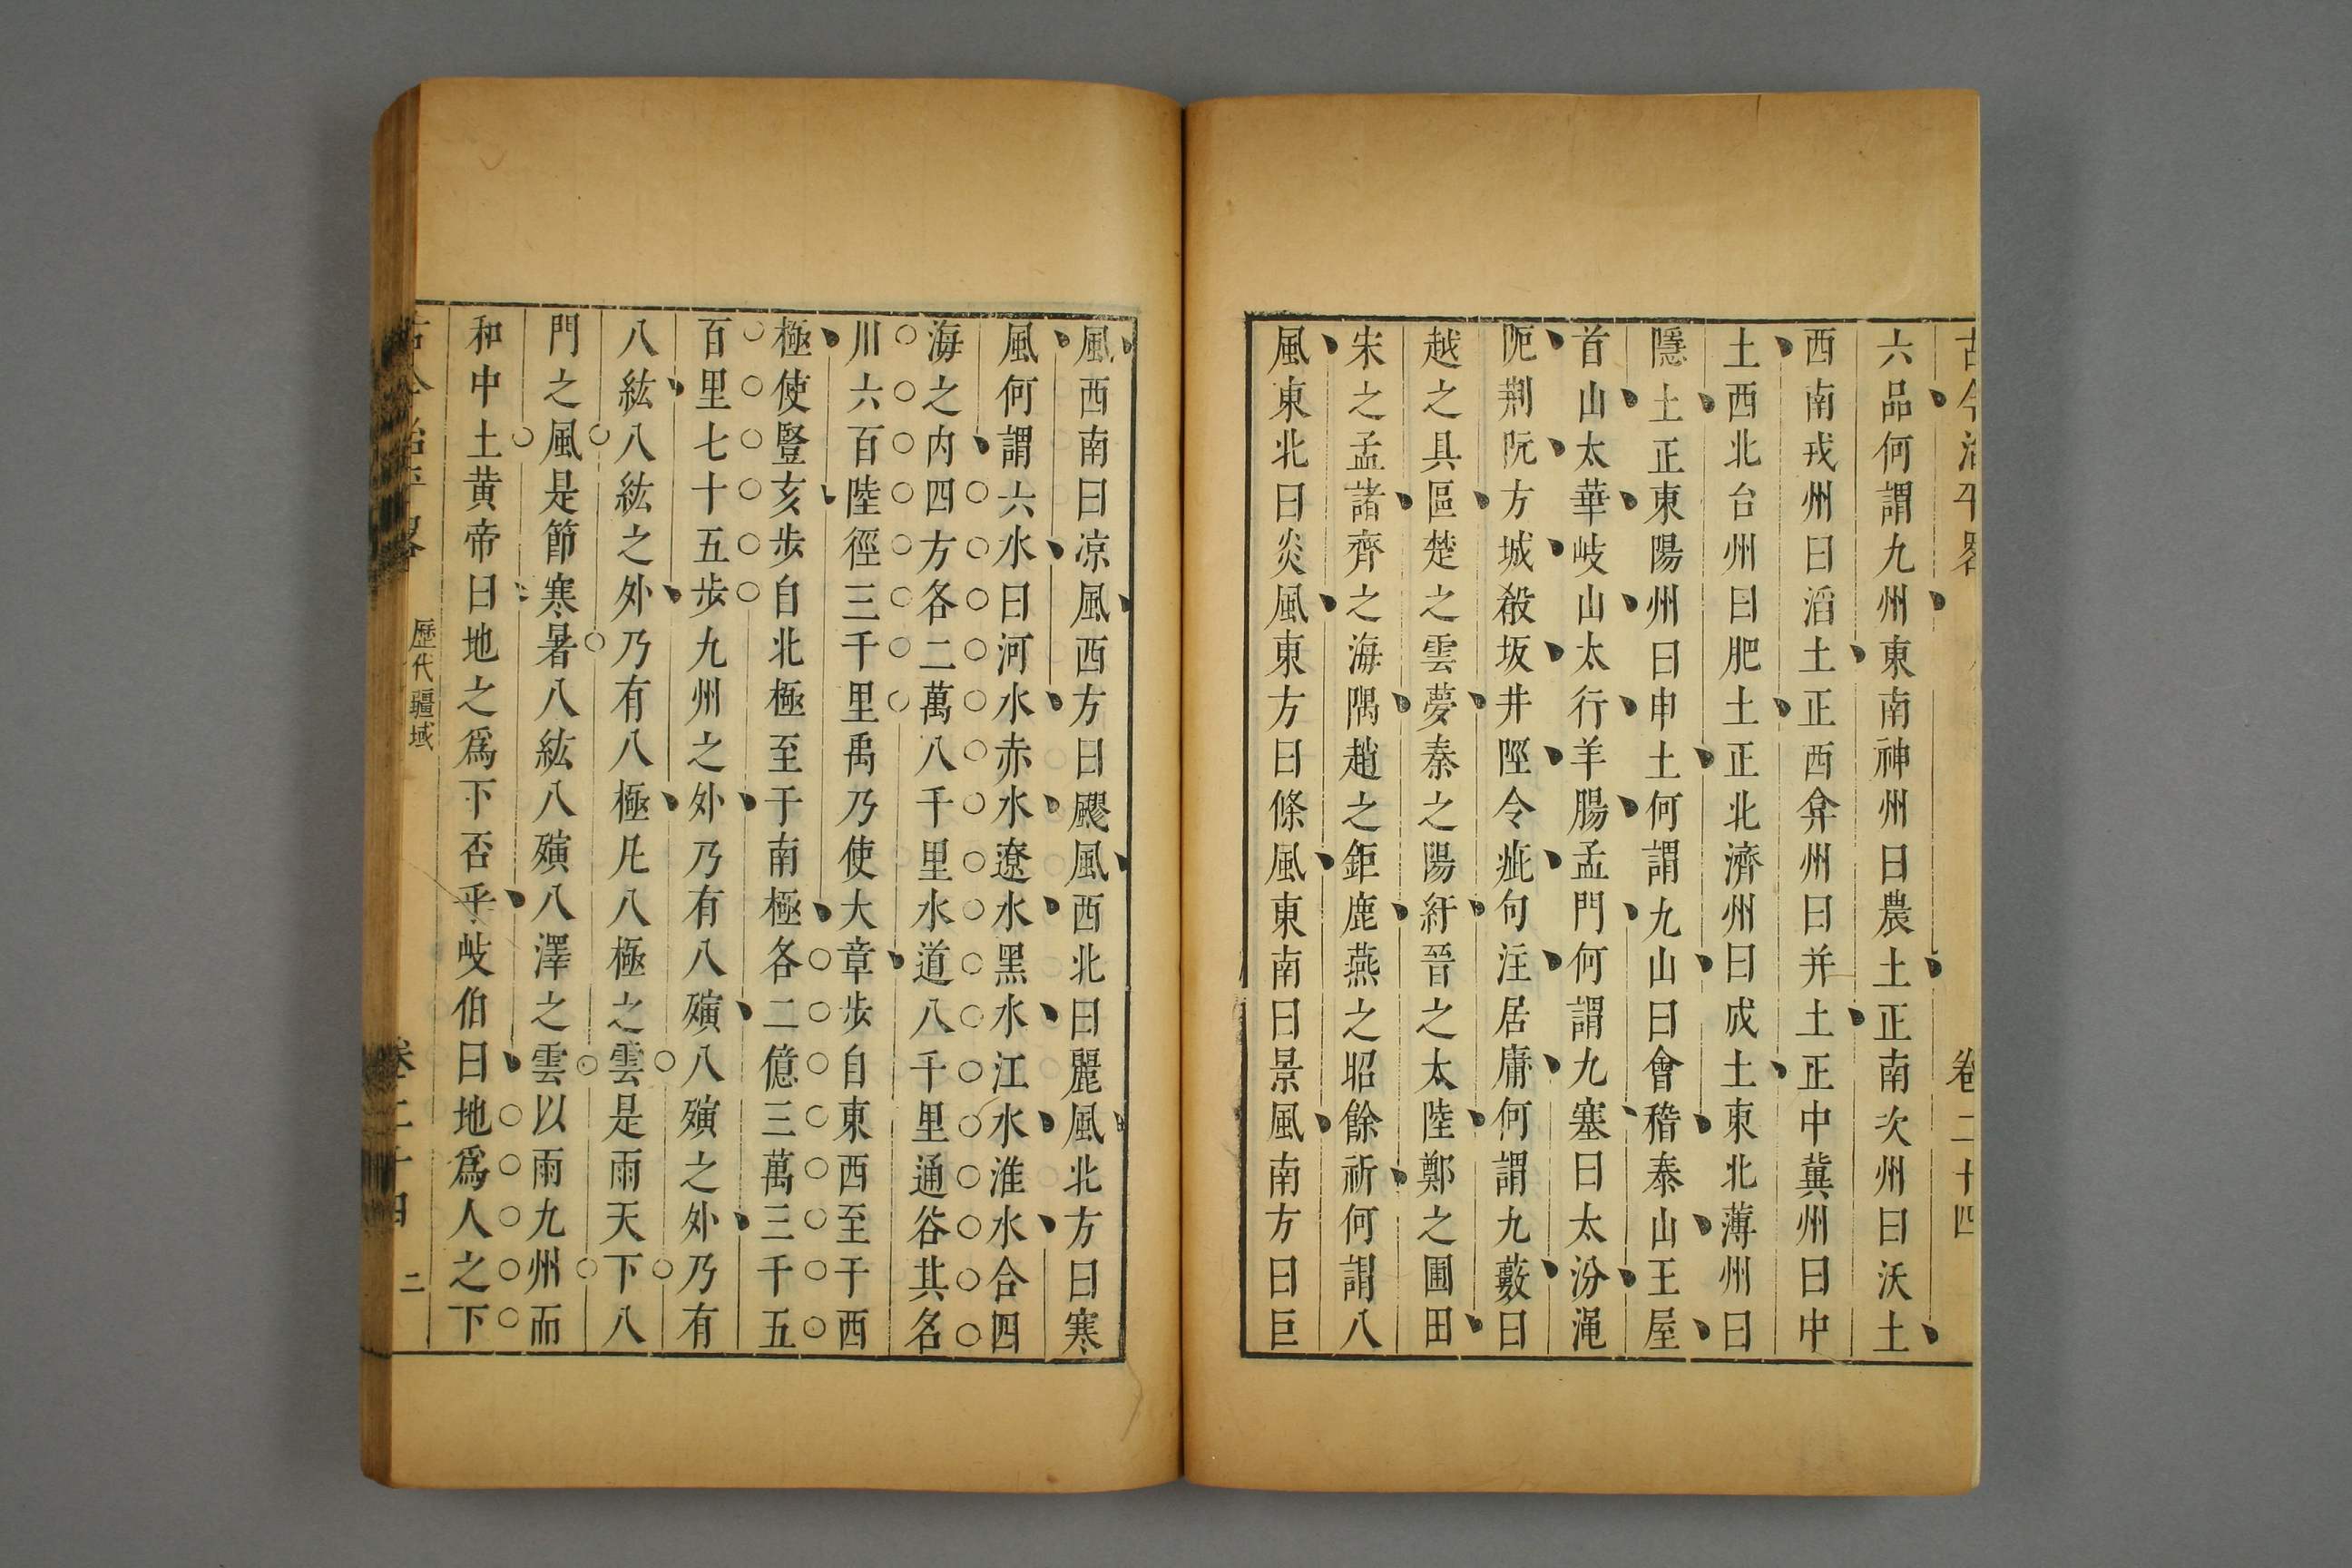 古今治平畧 卷二十四
六品何謂九州東南神州曰農土正南次州曰沃土
西南戎州曰滔土正西弇州曰幷土正中冀州曰中
土西北台州曰肥土正北濟州曰成土東北薄州曰
隱土正東陽州曰申土何謂九山曰會稽泰山王屋
首山太華岐山太行羊腸孟門何謂九塞曰太汾澠
阨荆阮方城殽坂井陘令疵句注居庸何謂九藪曰
越之具區楚之雲夢秦之陽紆晉之太陸鄭之圃田
宋之孟諸齊之海隅趙之鉅鹿燕之昭餘祈何謂八
風東北曰炎風東方曰條風東南曰景風南方曰巨
風西南曰凉風西方曰飂風西北曰麗風北方曰寒
風何謂六水曰河水赤水遼水黑水江水淮水合四
海之内四方各二萬八千里水道八千里通谷其名
川六百陸徑三千里禹乃使大章步自東西至于西
極使豎亥步自北極至于南極各二億三萬三千五
百里七十五步九州之外乃有八殥八殥之外乃有
八紘八紘之外乃有八極凡八極之雲是雨天下八
門之風是節寒暑八紘八殥八澤之雲以雨九州而
和中土黄帝曰地之爲下否乎岐伯曰地爲人之下
古今治平畧 歷代疆域 卷二十四 二